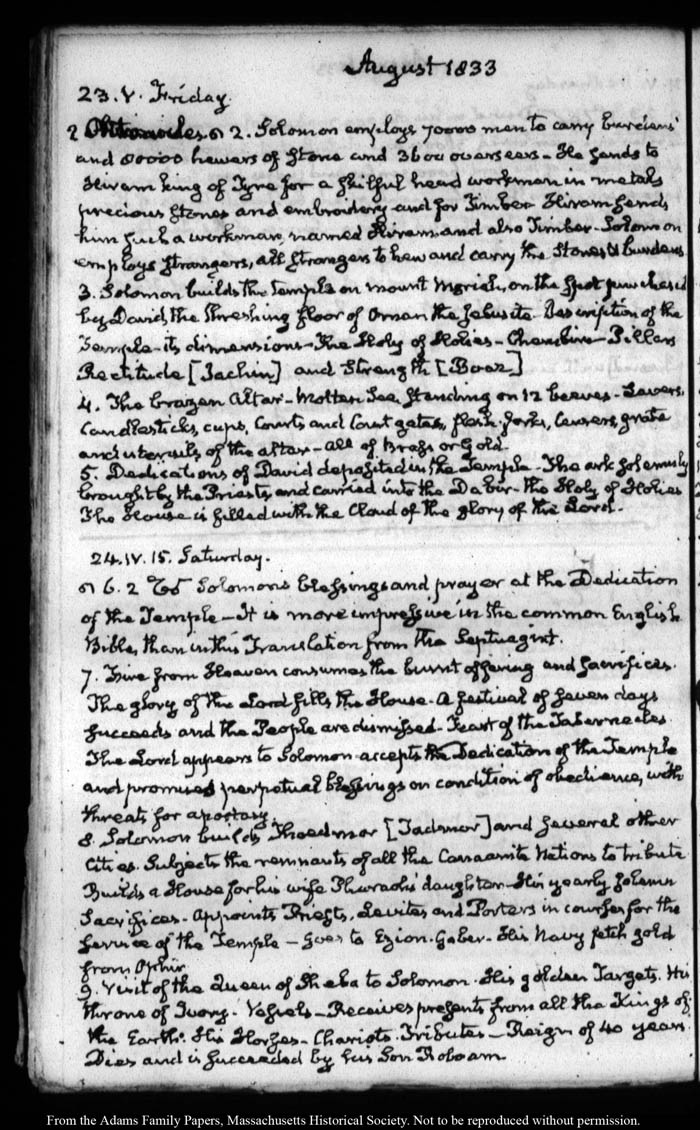 August 1833
23. V. Friday.
2 Chronicles 2. Solomon employs 70000 men to carry burdens
and 80000 hewers of stone and 3600 overseers - He sends to
Hiram king of Tyre for a skilful head workman in metals
precious stones and embroidery and for Timber. Hiram sends
him such a workman, named Hiram and also Timber - Solomon
employs strangers, all strangers to hew and carry the stones & burdens
3. Solomon builds the temple on mount Moriah, on the spot purchased
by David, the threshing floor of Ornan the Jebusite. Description of the
Temple - its dimensions - The Holy of Holies - Cherubim - Pillars
Rectitude [Jachin] and Strength [Boaz]
4. The brazen Altar - Molten Sea, standing on 12 beeves - Lavers,
Candlesticks, cups, Courts and Court gates, flesh-forks, Censers, grate
and utensils of the altar - all of Brass or Gold.
5. Dedications of David deposited in the Temple - The ark solemnly
brought by the Priests, and carried into the Dabir - the Holy of Holies
The House is filled with the Cloud of the glory of the Lord.
24. IV. 15. Saturday.
6. 2 Solomon's blessings and prayer at the Dedication
of the Temple - It is more impressive in the common English
Bible, than in this Translation from the Septuagint.
7. Fire from Heaven consumes the burnt offering and sacrifices.
The glory of the Lord fills the House. A festival of seven days
succeeds and the People are dismissed - Feast of the Tabernacles
The Lord appears to Solomon - accepts the Dedication of the Temple
and promises perpetual blessings on condition of obedience, with
threats for apostasy.
8. Solomon builds Thoedmor [Tadmor] and several other
Cities. Subjects the remnants of all the Canaanite Nations to tribute
Builds a House for his wife Pharaoh's daughter - His yearly solemn
Sacrifices - Appoints Priests, Levites and Porters in courses for the
service of the Temple - Goes to Ezion-Gaber - His Navy fetch gold
from Ophir
9. Visit of the Queen of Sheba to Solomon. His golden Targets. His
throne of Ivory. Vessels - Receives presents from all the Kings of
the Earth. His Horses - Chariots. Tributes - Reign of 40 years
Dies and is succeeded by his Son Roboam
From the Adams Family Papers, Massachusetts Historical Society. Not to be reproduced without permission.